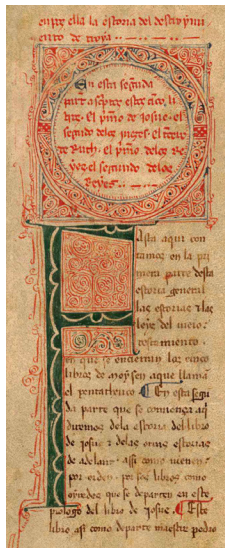 entre ella la estoria del destruymi
ento de troya
En esta segunda
part a seys destos cinco li
bros. El primero de josue. el
segundo delos juezes. el tercero
de Ruth. el primo delos Re
yes. el segundo delos
Reyes.
Hasta aqui con
tamos en la pri
mera parte desta
estoria general
las estorias & las
leyes del uieio
testamiento.
en que se encierran los cinco
libros de moysen aque llama
el pentatheuco. En esta segu
da parte que se comiença aq
diremos dela estoria del libro
de josue & delas otras estorias
de adelante. assi como uienen
por orden. por sos libros como
oyredes que se departen en este
prologo del libro de josue. Este
libro assi como departe maestre pedro